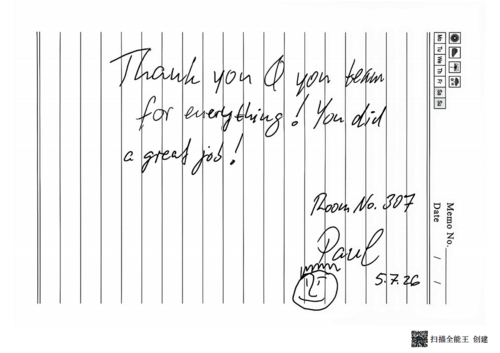 Thank you & you team
for everything! You did
a great job!
Room No. 307
Paul
5.7.26
Mo Tu We Th Fr Sa Su
Memo No.
Date / /
扫描全能王 创建